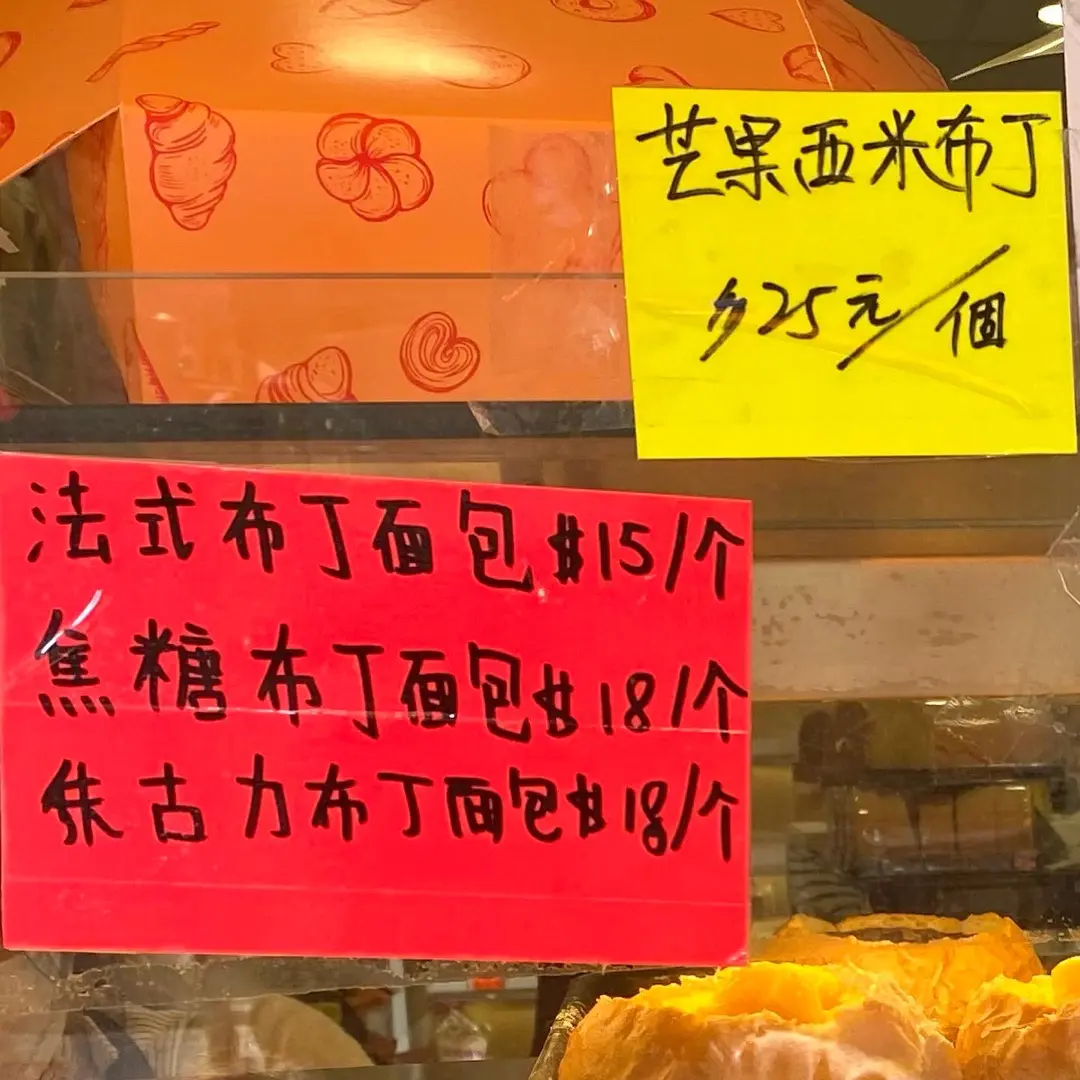 芒果西米布丁
$25元/個
法式布丁面包$15/个
焦糖布丁面包$18/个
朱古力布丁面包$18/个